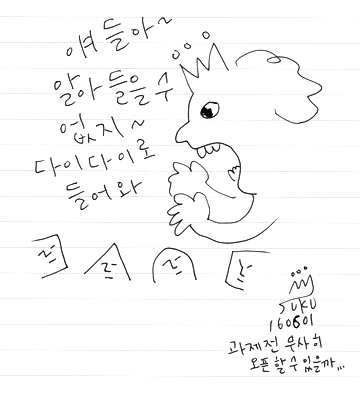 여 들아~
알아 들을 수
없지~
다이다이로
들어와
SUKU
160601
과제전 무사히
오픈 할 수 있을까...